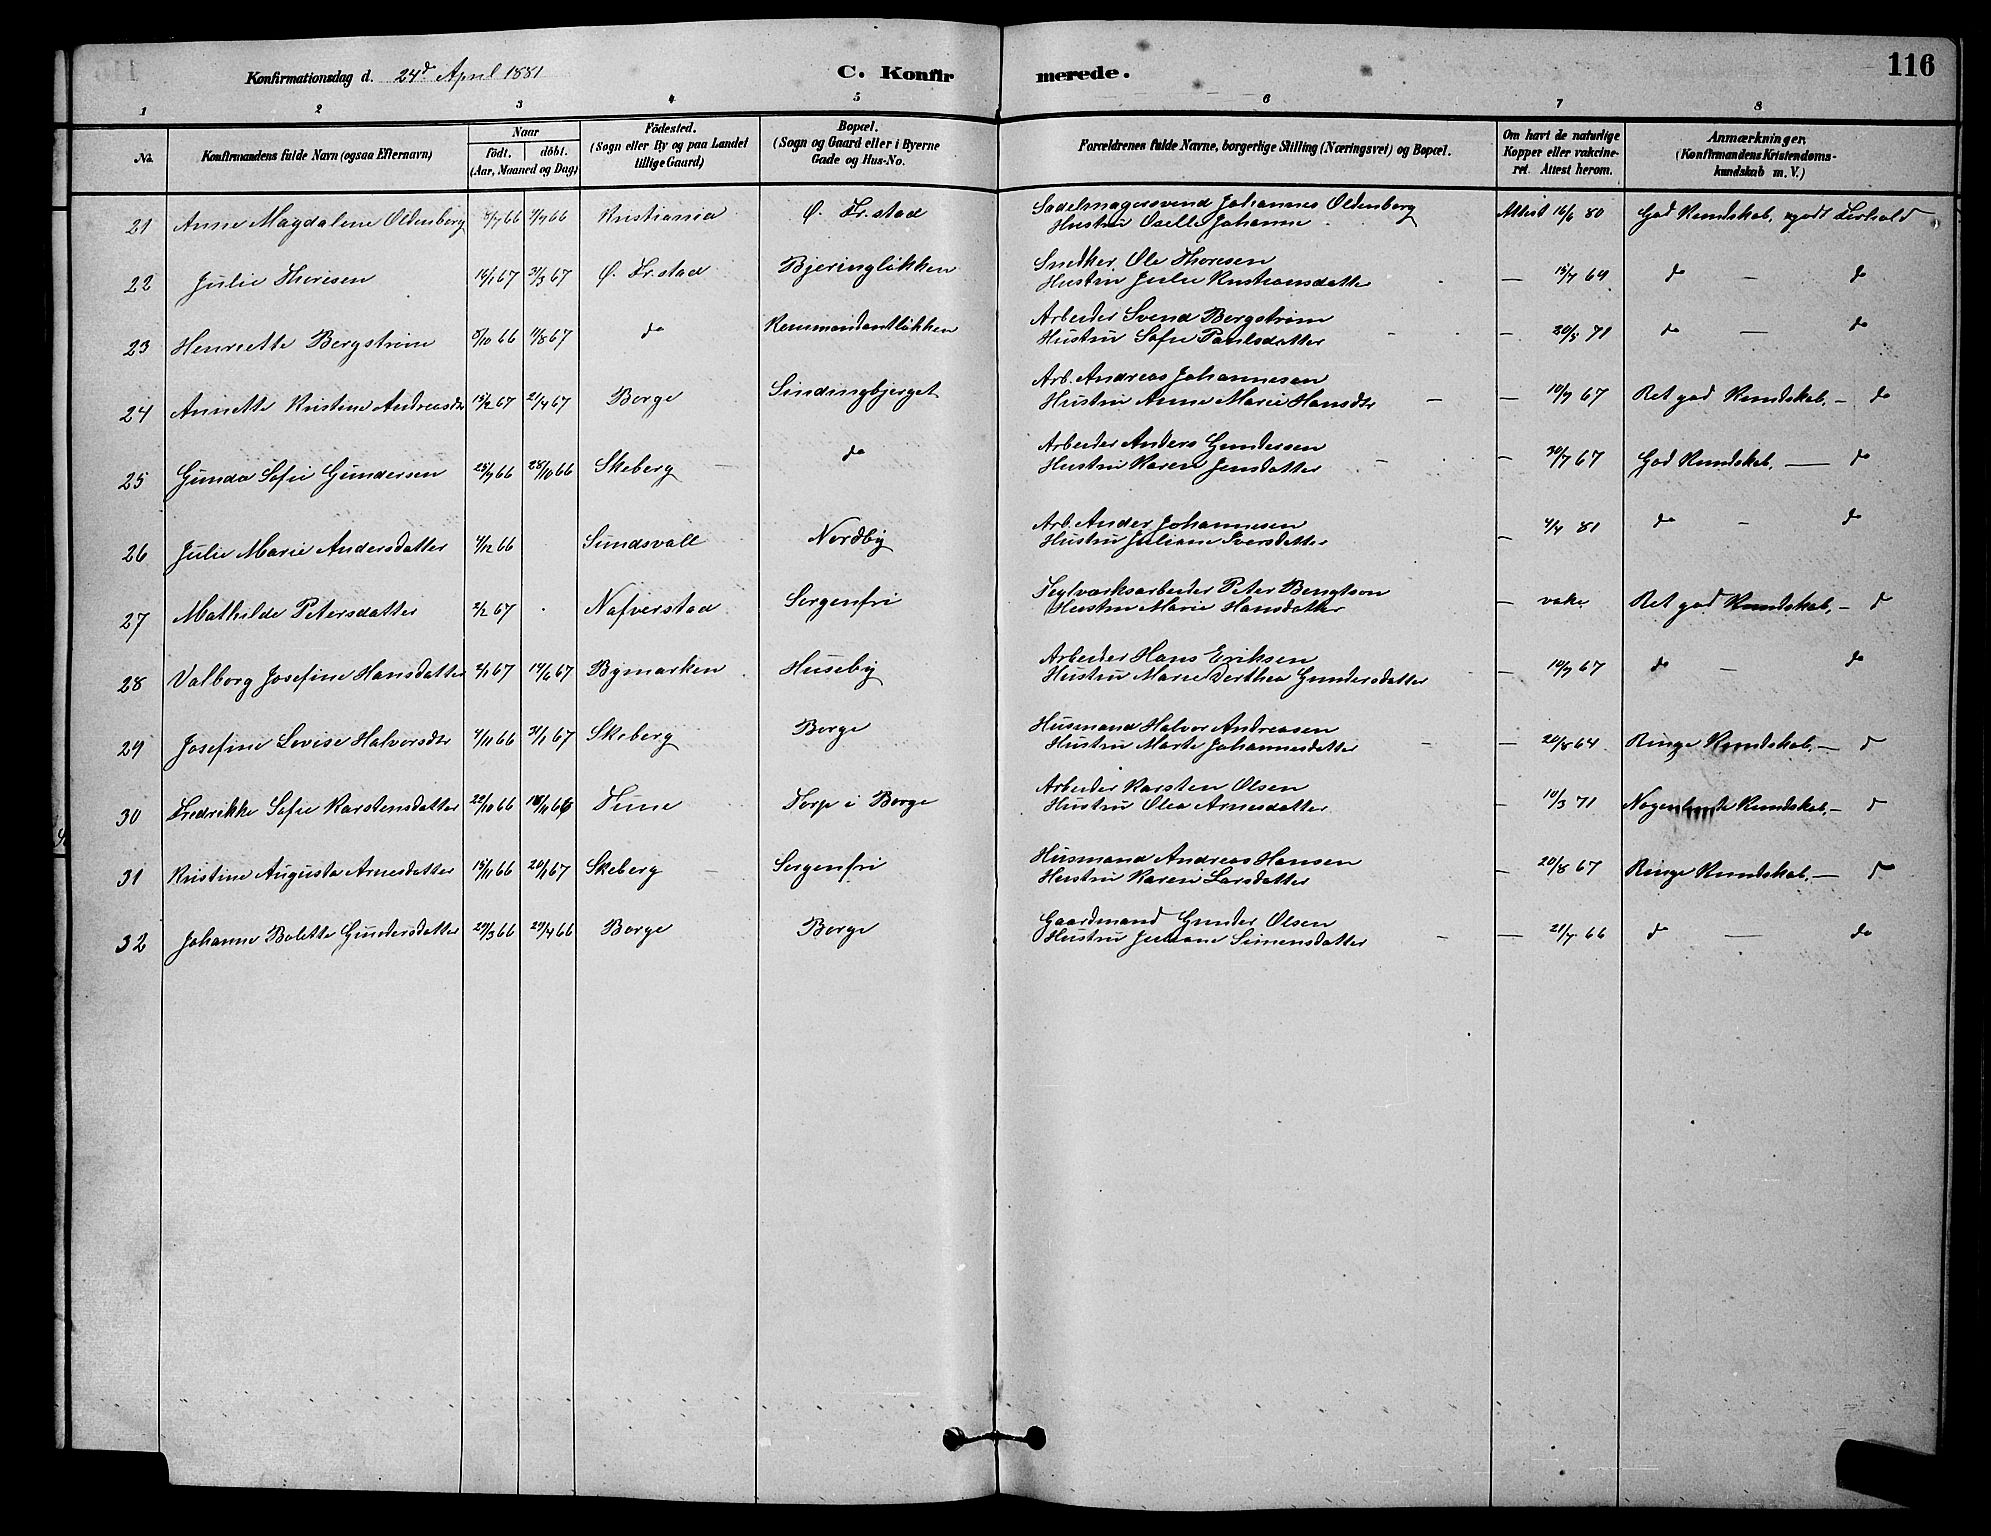 116
Konfirmationsdag d. 24d April 1881 C. Konfir merede.
1 2 3 4 5 6 7 8
No. Konfirmandens fulde Navn (ogsaa Efternavn) Naar födt. döbt. (Aar, Maaned og Dag) Födested. (Sogn eller By og paa Landet tillige Gaard) Bopæl. (Sogn og Gaard eller i Byerne Gade og Hus-No. Forældrenes fulde Navne, borgerlige Stilling (Næringsvei) og Bopæl. Om havt de naturlige Kopper eller vakcineret. Attest herom. Anmærkninger. (Konfirmandens Kristendomskundskab m. V.)
21 Anne Magdalene Oldenborg 66 66 Kristiania Ø. Fr.stad Sadelmagersvend Johannes Oldenborg
Hustru Johanne Attest 16/6 80 God Kundskab, godt Forhold
22 Julie Thoresen 16/1 67 31/3 67 Ø. Fr.stad Bjeringløkken Snedker Ole Thoresen
Hustru Julie Kristiansdatter — 15/7 69 do — do
23 Henriette Bergstrøm 5/10 66 11/8 67 do Kommandantløkken Arbeider Svend Bergstrøm
Hustru Sofie Paulsdatter — 30/5 71 do — do
24 Annette Kristine Andreasdtr 15/2 67 21/4 67 Borge Sindingbjerget Arb. Andreas Johannesen
Hustru Anne Marie Hansdtr — 10/9 67 Ret god Kundskab, — do
25 Gunda Sofie Gundersen 25/9 66 28/10 66 Skeberg do Arbeider Anders Gundersen
Hustru Karen Jensdatter — 30/7 67 God Kundskab, — do
26 Julie Marie Andersdatter 4/12 66 Sundsvall Nordby Arb. Ander Johannesen
Hustru Juliane Iversdatter — 4/4 81 do — do
27 Mathilde Petersdatter 2/2 67 Nafverstad Sorgenfri Teglværksarbeider Peter Bengtson
Hustru Marie Hansdatter — vakc Ret god Kundskab, — d
28 Valborg Josefine Hansdatter 2/1 67 14/6 67 Bymarken Huseby Arbeider Hans Eriksen
Hustru Marie Dorthea Gundersdatter — 10/9 67 do — do
29 Josefine Lovise Halvorsdtr 4/11 66 31/1 67 Skeberg Borge Husmand Halvor Andreasen
Hustru Marte Johannesdatter — 20/8 64 Ringe Kundskab, — d
30 Fredrikke Sofie Karstensdatter 22/10 66 18/11 66 Tune Torp i Borge Arbeider Karsten Olsen
Hustru Olea Arnesdatter — 10/3 71 Nogenlunde Kundskab, — d
31 Kristine Augusta Arnesdatter 15/11 66 20/1 67 Skeberg Sorgenfri Husmand Andreas Hansen
Hustru Karen Larsdatter — 20/8 67 Ringe Kundskab, — d
32 Johanne Bolette Gundersdatter 29/3 66 29/4 66 Borge Borge Gaardmand Gunder Olsen
Hustru Simensdatter — 21/7 66 d — do